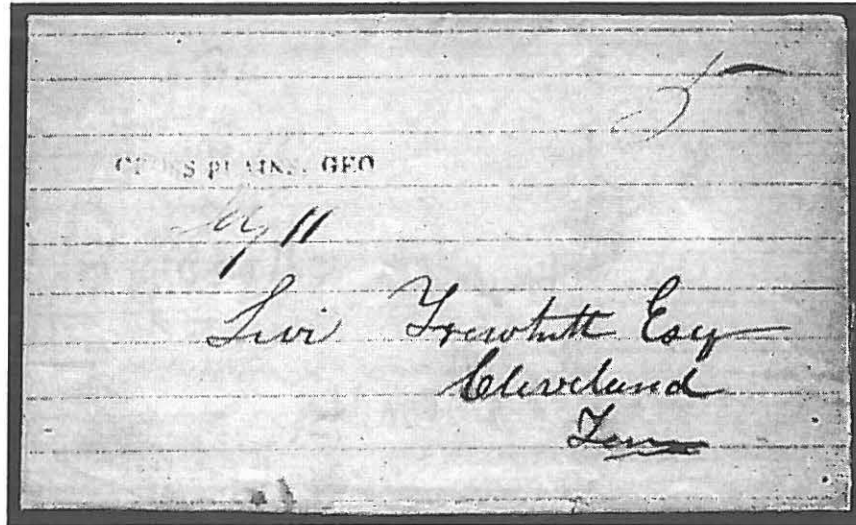 5
CROSS PLAINS. GEO
July 11
Levi Trewhitt Esq
Cleveland
Tenn